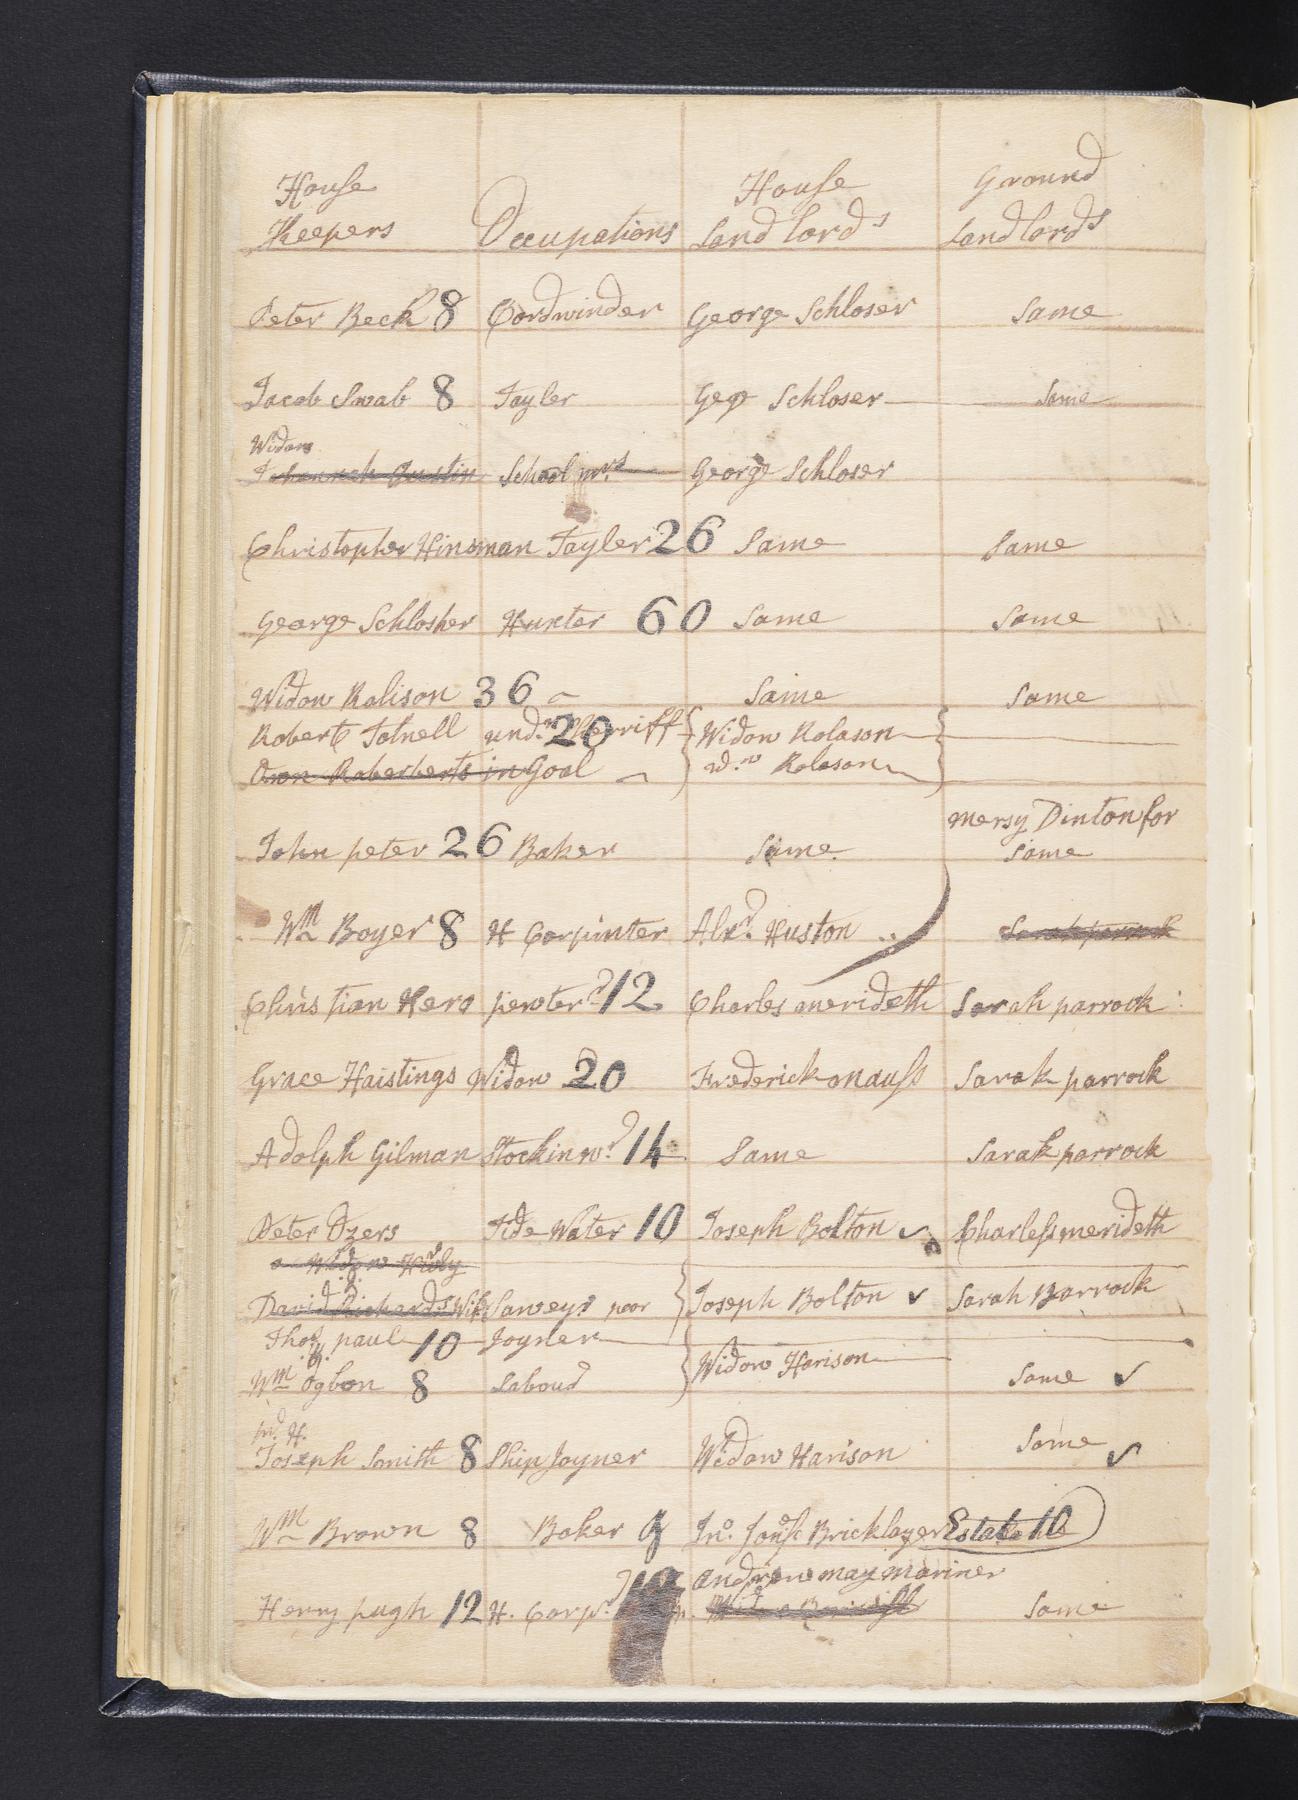 House Keepers Occupations House Landlords Ground Landlords
Peter Beck 8 Cordwinder George Schloser Same
Jacob Swab 8 Tayler Geo Schloser Same
Widow
School George Schloser
Christopher Hinsman Tayler 26 Same Same
George Schlosher Huxter 60 Same Same
Widow Rolison 36 Same Same
Robert Tolnell undr 20 Sherriff Widow Rolason
in Goal wdw Rolason
mersy Dinton for
John peter 26 Baker Same Same
Wm Boyer 8 H Carpinter Alxr Huston Sarah parrock
Christian Hero pewterr 12 Charles merideth Sarah parrock
Grace Haistings Widow 20 Frederick mauss Sarah parrock
Adolph Gilman Stockinwr 14 Same Sarah parrock
Peter Ozers Tide Water 10 Joseph Bolton Charless merideth
a Widow
David Richards Wife Saweyr poor Joseph Bolton Sarah Barrock
Thos paul 10 Joyner
Widow Harison
Wm Ogbon 8 Labour Same
Joseph Smith 8 Ship Joyner Widow Harison Same
Wm Brown 8 Baker 9 Jno Jones Bricklayer Estate 10
Andrew may mariner
Henry pugh 12 H. Carpr 12 Same